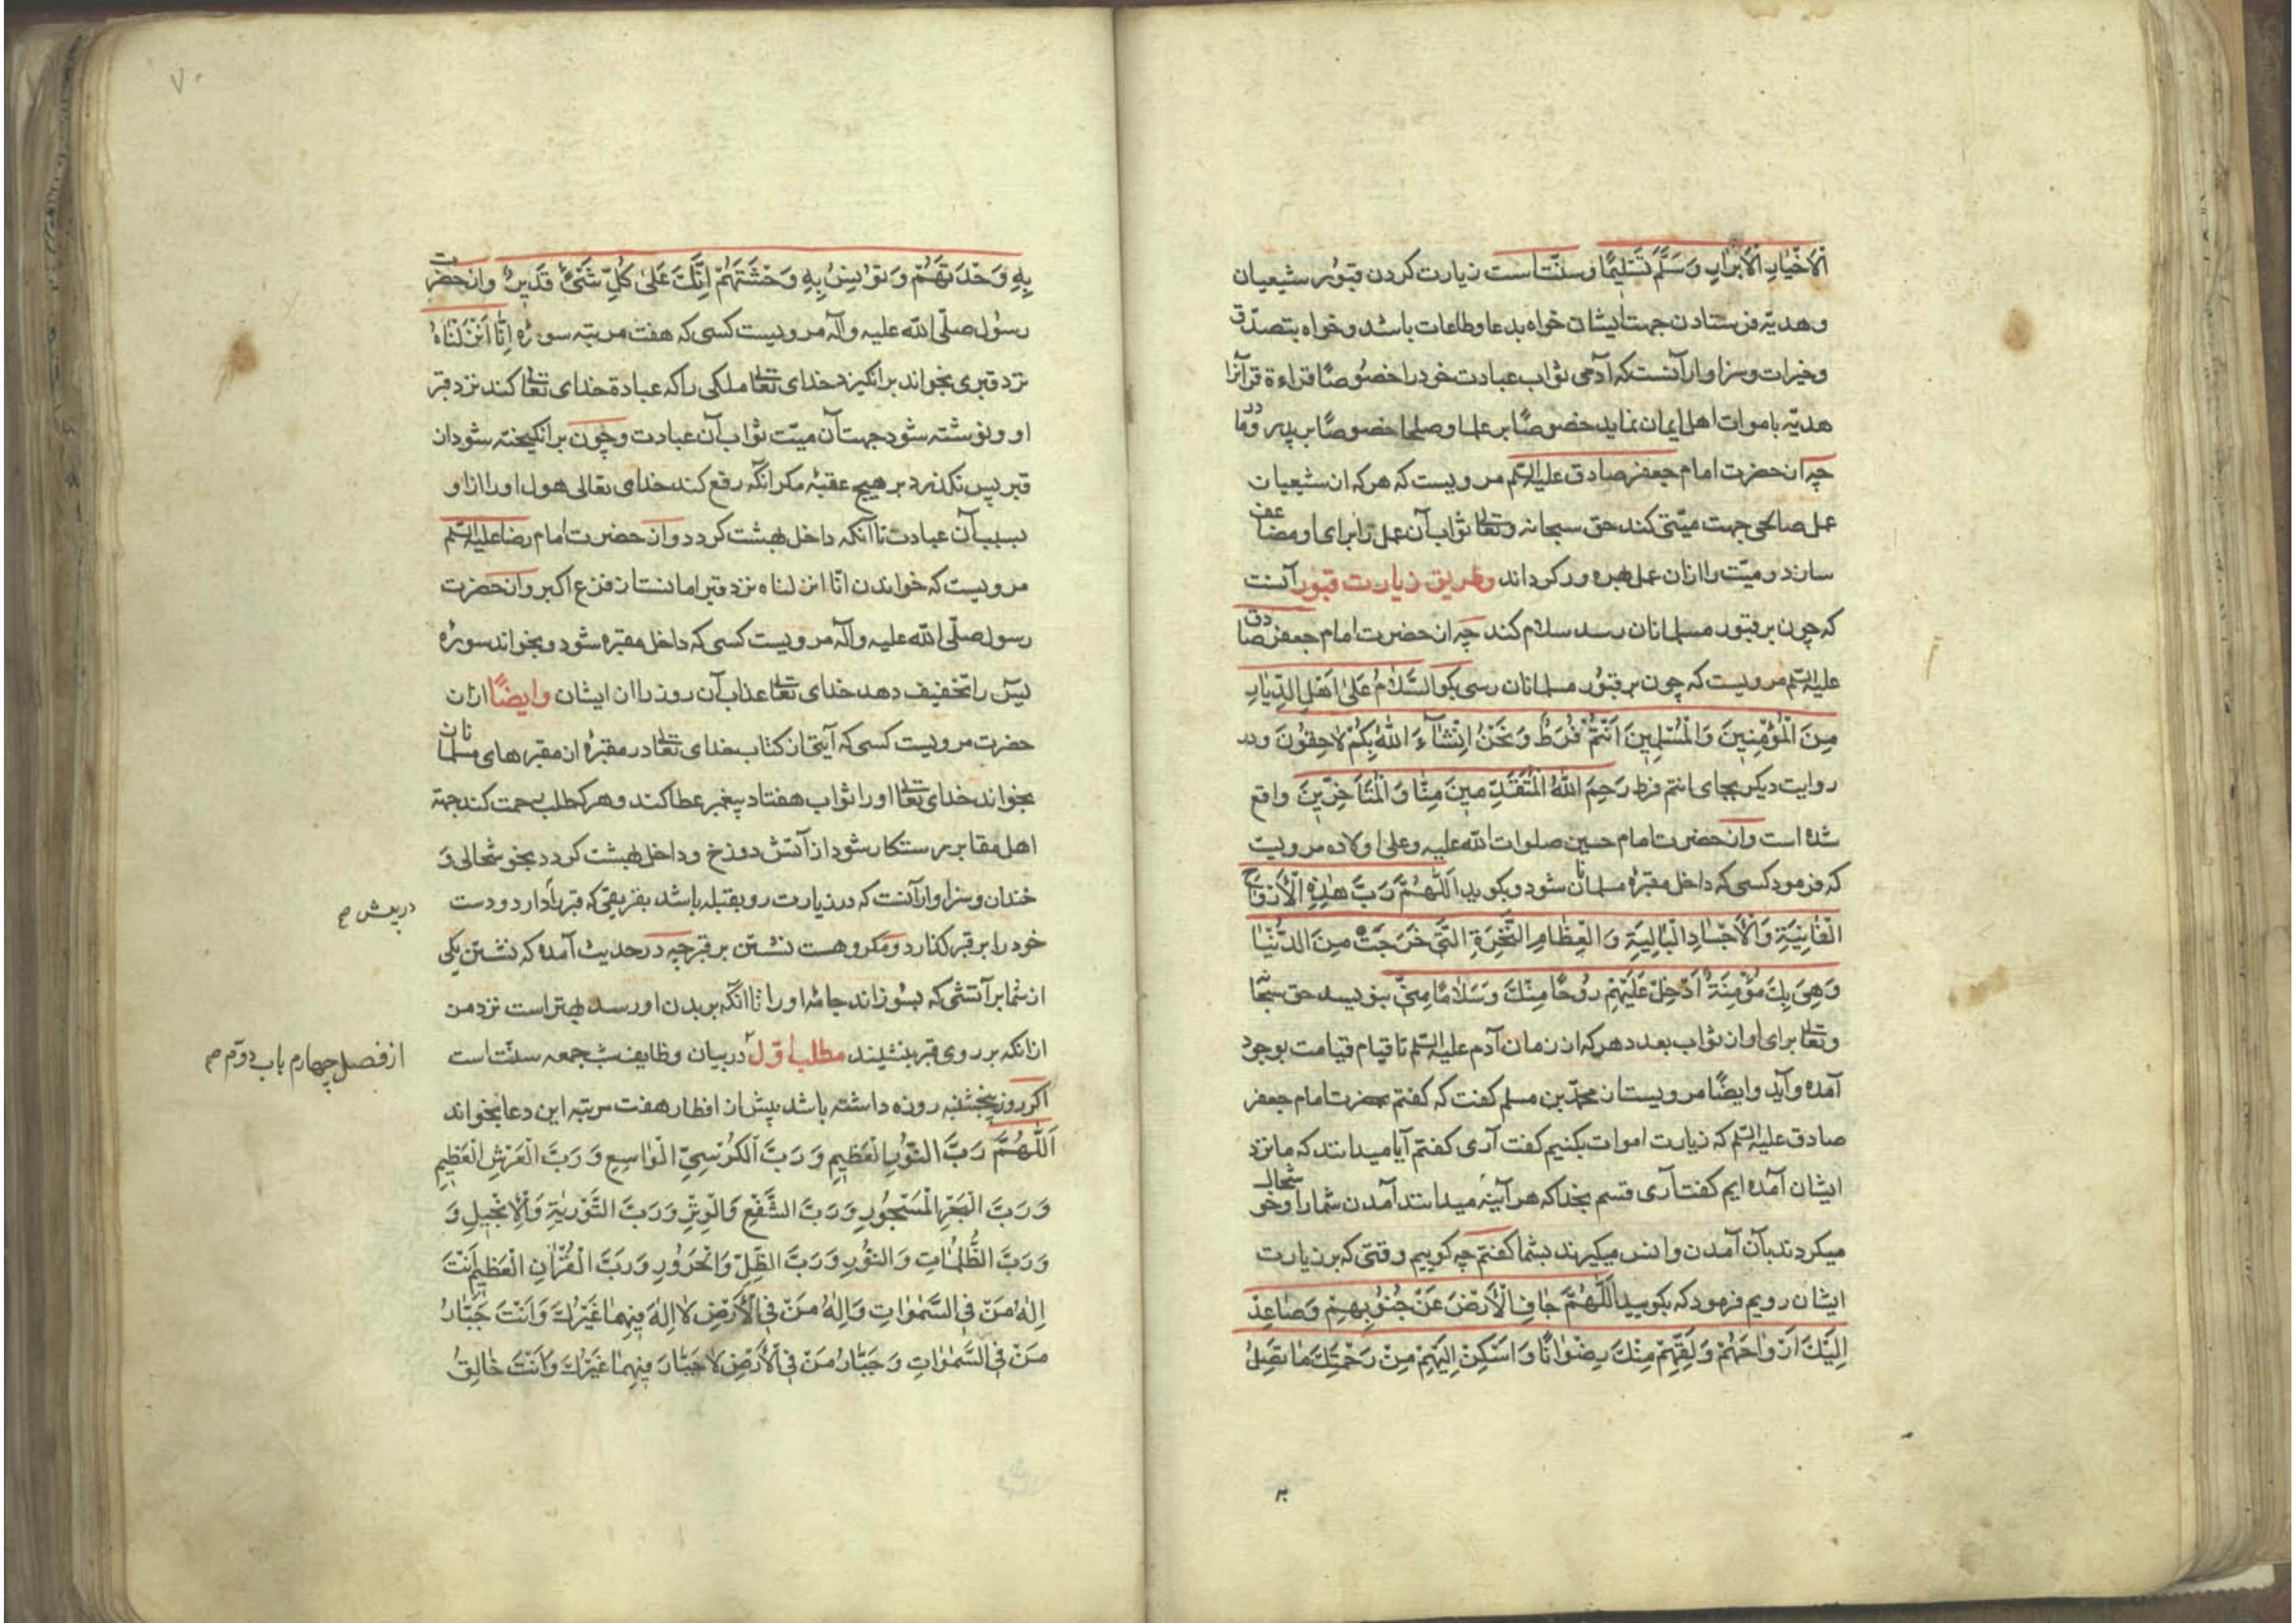 اْلاَخْیٰارِ اْلاَبْرٰارِ وَسَلَّمَ تَسْلیٖمًا وسنّتاست زیارت کردن قبور شیعیان
وهدیّه فرستادن جهت ایشان خواه بدعا وطاعات باشد وخواه بتصدّق
وخیرات وسزاوار آنست که آدمی ثواب عبادت خود را خصوصًا قراءة قرآنرا
هدیّه باموات اهل ایمان نماید خصوصًا بر علما وصلحا خصوصًا بر پدر ومادر
چه از حضرت امام جعفر صادق علیه السّلم مرویست که هرکه از شیعیان
عمل صالحی جهت میّتی کند حق سبحانه وتعالی ثواب آن عمل را برای او مضاعف
سازد و میّت را از آن عمل بهره ور کرداند وطریق زیارت قبور آنست
که چون بر قبور مسلمانان رسد سلام کند چه از حضرت امام جعفر صادق
علیه السّلم مرویست که چون بر قبور مسلمانان رسی بکو السَّلامُ عَلیٰ اَهْلِ الدِّیٰارِ
مِنَ الْمُؤْمِنیٖنَ وَالْمُسْلِمیٖنَ اَنْتُمْ فَرَطٌ وَنَحْنُ اِنْشٰآءَ اللّٰهُ بِکُمْ لاٰحِقُونَ ودر
روایت دیکر بجای انتم فرط رَحِمَ اللّٰهُ الْمُتَقَدِّمیٖنَ مِنّٰا وَالْمُتَاَخِّریٖنَ واقع
شده است واز حضرت امام حسین صلوات الله علیه وعلی اولاده مرویست
که فرمود کسی که داخل مقبرهٔ مسلمانان شود وبکوید اَللّٰهُمَّ رَبَّ هٰذِهِ اْلاَرْوٰاحِ
الْفٰانِیَةِ وَاْلاَجْسٰادِ الْبٰالِیَةِ وَالْعِظٰامِ النَّخِرَةِ الَّتیٖ خَرَجَتْ مِنَ الدُّنْیٰا
وَهِیَ بِكَ مُؤْمِنَةٌ اَدْخِلْ عَلَیْهِمْ رُوحًا مِنْكَ وَسَلاٰمًا مِنّیٖ بنویسد حق سبحانه
وتعالی برای او از ثواب بعدد هرکه از زمان آدم علیه السّلم تا قیام قیامت بوجود
آمده وآید وایضًا مرویست از محمّد بن مسلم کفت که کفتم بحضرت امام جعفر
صادق علیه السّلم که زیارت اموات بکنیم کفت آری کفتم آیا میدانند که ما نزد
ایشان آمده ایم کفت آری قسم بخدا که هر آینه میدانند آمدن شما را وخوشحال
میکردند بآن آمدن وانس میکیرند بشما کفتم چه کوییم وقتی که بزیارت
ایشان رویم فرمود که بکویید اَللّٰهُمَّ جٰافِ اْلاَرْضَ عَنْ جُنُوبِهِمْ وَصٰاعِدْ
اِلَیْكَ اَرْوٰاحَهُمْ وَلَقِّهِمْ مِنْكَ رِضْوٰانًا وَاَسْکِنْ اِلَیْهِمْ مِنْ رَحْمَتِكَ مٰا تَصِلُ
۷۰
بِهٖ وَحْدَتَهُمْ وَتُوٰنِسُ بِهٖ وَحْشَتَهُمْ اِنَّكَ عَلیٰ کُلِّ شَیْئٍ قَدیٖرٌ واز حضرت
رسول صلّی الله علیه وآله مرویست کسی که هفت مرتبه سورهٔ اِنّٰا اَنْزَلْنٰاهُ
نزد قبری بخواند برانکیزد خدای تعالی ملکی را که عبادة خدای تعالی کند نزد قبر
او ونوشته شود جهت آن میّت ثواب آن عبادت وچون برانکیخته شود از
قبر پس نکذرد بر هیچ عقبهٔ مکر آنکه رفع کند خدای تعالی هول او را از او
بسبب آن عبادت تا آنکه داخل بهشت کردد واز حضرت امام رضا علیه السّلم
مرویست که خواندن انّا انزلناه نزد قبر امانست از فزع اکبر واز حضرت
رسول صلّی الله علیه وآله مرویست کسی که داخل مقبره شود وبخواند سورهٔ
یٰس را تخفیف دهد خدای تعالی عذاب آن روز را از ایشان وایضًا از آن
حضرت مرویست کسی که آیتی از کتاب خدای تعالی در مقبرهٔ از مقبرهای مسلمانان
بخواند خدای تعالی او را ثواب هفتاد پیغمبر عطا کند وهرکه طلب رحمت کند جهة
اهل مقابر رستکار شود از آتش دوزخ وداخل بهشت کردد بخوشحالی و
خندان وسزاوار آنست که در زیارت رو بقبله باشد بفریقی که قبر را دارد ودست
دربعش صح
خود را بر قبر کذارد ومکروهست نشستن بر قبر چه در حدیث آمده که نشستن یکی
از شما بر آتشی که بسوزاند جامهٔ او را تا آنکه بر بدن او رسد بهتر است نزد من
از آنکه بر روی قبر بنشیند مطلب اوّل در بیان وظایف شب جمعه سنّتاست
از فصل چهارم باب دوّم صح
اکر روز پنجشنبه روزه داشته باشد پیش از افطار هفت مرتبه این دعا بخواند
اَللّٰهُمَّ رَبَّ النُّورِ الْعَظیٖمِ وَرَبَّ الْکُرْسِیِّ الْوٰاسِعِ وَرَبَّ الْعَرْشِ الْعَظیٖمِ
وَرَبَّ الْبَحْرِ الْمَسْجُورِ وَرَبَّ الشَّفْعِ وَالْوِتْرِ وَرَبَّ التَّوْرٰیةِ وَاْلاِنْجیٖلِ وَ
وَرَبَّ الظُّلُمٰاتِ وَالنُّورِ وَرَبَّ الظِّلِّ وَالْحَرُورِ وَرَبَّ الْقُرْاٰنِ الْعَظیٖمِ اَنْتَ
اِلٰهُ مَنْ فِی السَّمٰوٰاتِ وَاِلٰهُ مَنْ فِی اْلاَرْضِ لاٰ اِلٰهَ فیٖهِمٰا غَیْرُكَ وَاَنْتَ جَبّٰارُ
مَنْ فِی السَّمٰوٰاتِ وَجَبّٰارُ مَنْ فِی اْلاَرْضِ لاٰ جَبّٰارَ فیٖهِمٰا غَیْرُكَ وَاَنْتَ خٰالِقُ